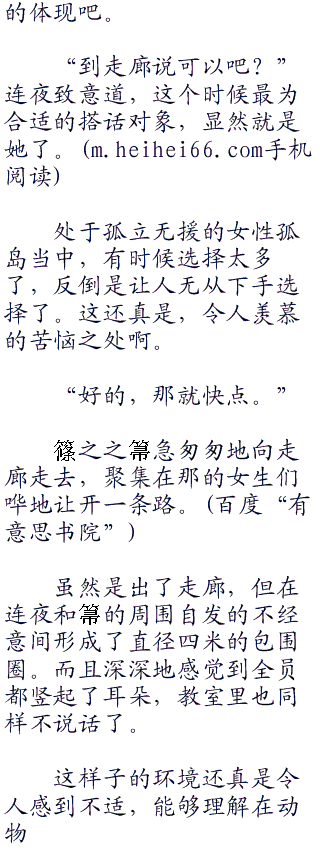 的体现吧。
“到走廊说可以吧？”
连夜致意道，这个时候最为
合适的搭话对象，显然就是
她了。(m.heihei66.com手机
阅读)
处于孤立无援的女性孤
岛当中，有时候选择太多
了，反倒是让人无从下手选
择了。这还真是，令人羡慕
的苦恼之处啊。
“好的，那就快点。”
篠之之箒急匆匆地向走
廊走去，聚集在那的女生们
哗地让开一条路。(百度“有
意思书院”)
虽然是出了走廊，但在
连夜和箒的周围自发的不经
意间形成了直径四米的包围
圈。而且深深地感觉到全员
都竖起了耳朵，教室里也同
样不说话了。
这样子的环境还真是令
人感到不适，能够理解在动
物